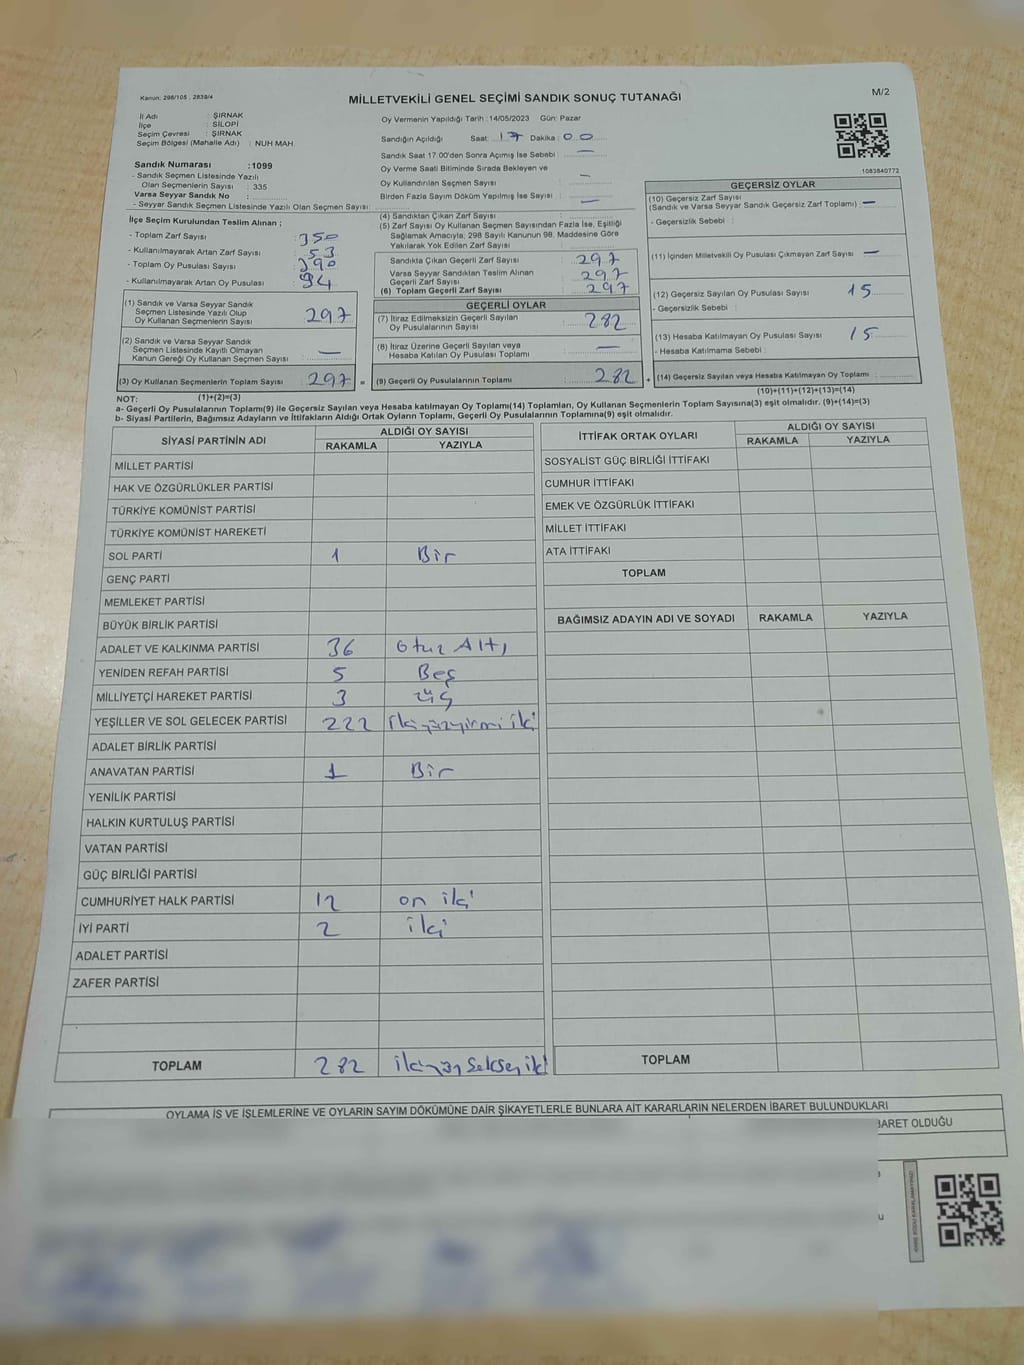 Kanun: 298/105 , 2839/4
MİLLETVEKİLİ GENEL SEÇİMİ SANDIK SONUÇ TUTANAĞI
M/2
İl Adı : ŞIRNAK
İlçe : SİLOPİ
Seçim Çevresi : ŞIRNAK
Seçim Bölgesi (Mahalle Adı) : NUH MAH.
Sandık Numarası :1099
- Sandık Seçmen Listesinde Yazılı
Olan Seçmenlerin Sayısı : 335
Varsa Seyyar Sandık No :
- Seyyar Sandık Seçmen Listesinde Yazılı Olan Seçmen Sayısı:
Oy Vermenin Yapıldığı Tarih :14/05/2023 Gün: Pazar
Sandığın Açıldığı Saat: 17 Dakika: 00
Sandık Saat 17.00'den Sonra Açımış İse Sebebi : —
Oy Verme Saati Bitiminde Sırada Bekleyen ve
Oy Kullandırılan Seçmen Sayısı : —
Birden Fazla Sayım Döküm Yapılmış İse Sayısı : —
1083840772
İlçe Seçim Kurulundan Teslim Alınan ;
- Toplam Zarf Sayısı : 350
- Kullanılmayarak Artan Zarf Sayısı : 53
- Toplam Oy Pusulası Sayısı : 390
- Kullanılmayarak Artan Oy Pusulası : 94
(1) Sandık ve Varsa Seyyar Sandık
Seçmen Listesinde Yazılı Olup
Oy Kullanan Seçmenlerin Sayısı : 297
(2) Sandık ve Varsa Seyyar Sandık
Seçmen Listesinde Kayıtlı Olmayan
Kanun Gereği Oy Kullanan Seçmen Sayısı : —
(3) Oy Kullanan Seçmenlerin Toplam Sayısı : 297
(1)+(2)=(3)
(4) Sandıktan Çıkan Zarf Sayısı :
(5) Zarf Sayısı Oy Kullanan Seçmen Sayısından Fazla İse, Eşitliği
Sağlamak Amacıyla; 298 Sayılı Kanunun 98. Maddesine Göre
Yakılarak Yok Edilen Zarf Sayısı :
Sandıkta Çıkan Geçerli Zarf Sayısı : 297
Varsa Seyyar Sandıktan Teslim Alınan
Geçerli Zarf Sayısı : 297
(6) Toplam Geçerli Zarf Sayısı : 297
GEÇERLİ OYLAR
(7) İtiraz Edilmeksizin Geçerli Sayılan
Oy Pusulalarının Sayısı : 282
(8) İtiraz Üzerine Geçerli Sayılan veya
Hesaba Katılan Oy Pusulası Toplamı : —
= (9) Geçerli Oy Pusulalarının Toplamı : 282
GEÇERSİZ OYLAR
(10) Geçersiz Zarf Sayısı
(Sandık ve Varsa Seyyar Sandık Geçersiz Zarf Toplamı) : —
- Geçersizlik Sebebi :
(11) İçinden Milletvekili Oy Pusulası Çıkmayan Zarf Sayısı : —
(12) Geçersiz Sayılan Oy Pusulası Sayısı : 15
- Geçersizlik Sebebi :
(13) Hesaba Katılmayan Oy Pusulası Sayısı : 15
- Hesaba Katılmama Sebebi :
+ (14) Geçersiz Sayılan veya Hesaba Katılmayan Oy Toplamı :
(10)+(11)+(12)+(13)=(14)
NOT:
a- Geçerli Oy Pusulalarının Toplamı(9) ile Geçersiz Sayılan veya Hesaba katılmayan Oy Toplamı(14) Toplamları, Oy Kullanan Seçmenlerin Toplam Sayısına(3) eşit olmalıdır. (9)+(14)=(3)
b- Siyasi Partilerin, Bağımsız Adayların ve İttifakların Aldığı Ortak Oyların Toplamı, Geçerli Oy Pusulalarının Toplamına(9) eşit olmalıdır.
SİYASİ PARTİNİN ADI ALDIĞI OY SAYISI
RAKAMLA YAZIYLA
MİLLET PARTİSİ
HAK VE ÖZGÜRLÜKLER PARTİSİ
TÜRKİYE KOMÜNİST PARTİSİ
TÜRKİYE KOMÜNİST HAREKETİ
SOL PARTİ 1 Bir
GENÇ PARTİ
MEMLEKET PARTİSİ
BÜYÜK BİRLİK PARTİSİ
ADALET VE KALKINMA PARTİSİ 36 Otuz Altı
YENİDEN REFAH PARTİSİ 5 Beş
MİLLİYETÇİ HAREKET PARTİSİ 3 üç
YEŞİLLER VE SOL GELECEK PARTİSİ 222 İkiyüzyirmi iki
ADALET BİRLİK PARTİSİ
ANAVATAN PARTİSİ 1 Bir
YENİLİK PARTİSİ
HALKIN KURTULUŞ PARTİSİ
VATAN PARTİSİ
GÜÇ BİRLİĞİ PARTİSİ
CUMHURİYET HALK PARTİSİ 12 on iki
İYİ PARTİ 2 iki
ADALET PARTİSİ
ZAFER PARTİSİ
TOPLAM 282 ikiyüz Seksen iki
İTTİFAK ORTAK OYLARI ALDIĞI OY SAYISI
RAKAMLA YAZIYLA
SOSYALİST GÜÇ BİRLİĞİ İTTİFAKI
CUMHUR İTTİFAKI
EMEK VE ÖZGÜRLÜK İTTİFAKI
MİLLET İTTİFAKI
ATA İTTİFAKI
TOPLAM
BAĞIMSIZ ADAYIN ADI VE SOYADI RAKAMLA YAZIYLA
TOPLAM
OYLAMA İŞ VE İŞLEMLERİNE VE OYLARIN SAYIM DÖKÜMÜNE DAİR ŞİKAYETLERLE BUNLARA AİT KARARLARIN NELERDEN İBARET BULUNDUKLARI
BARET OLDUĞU